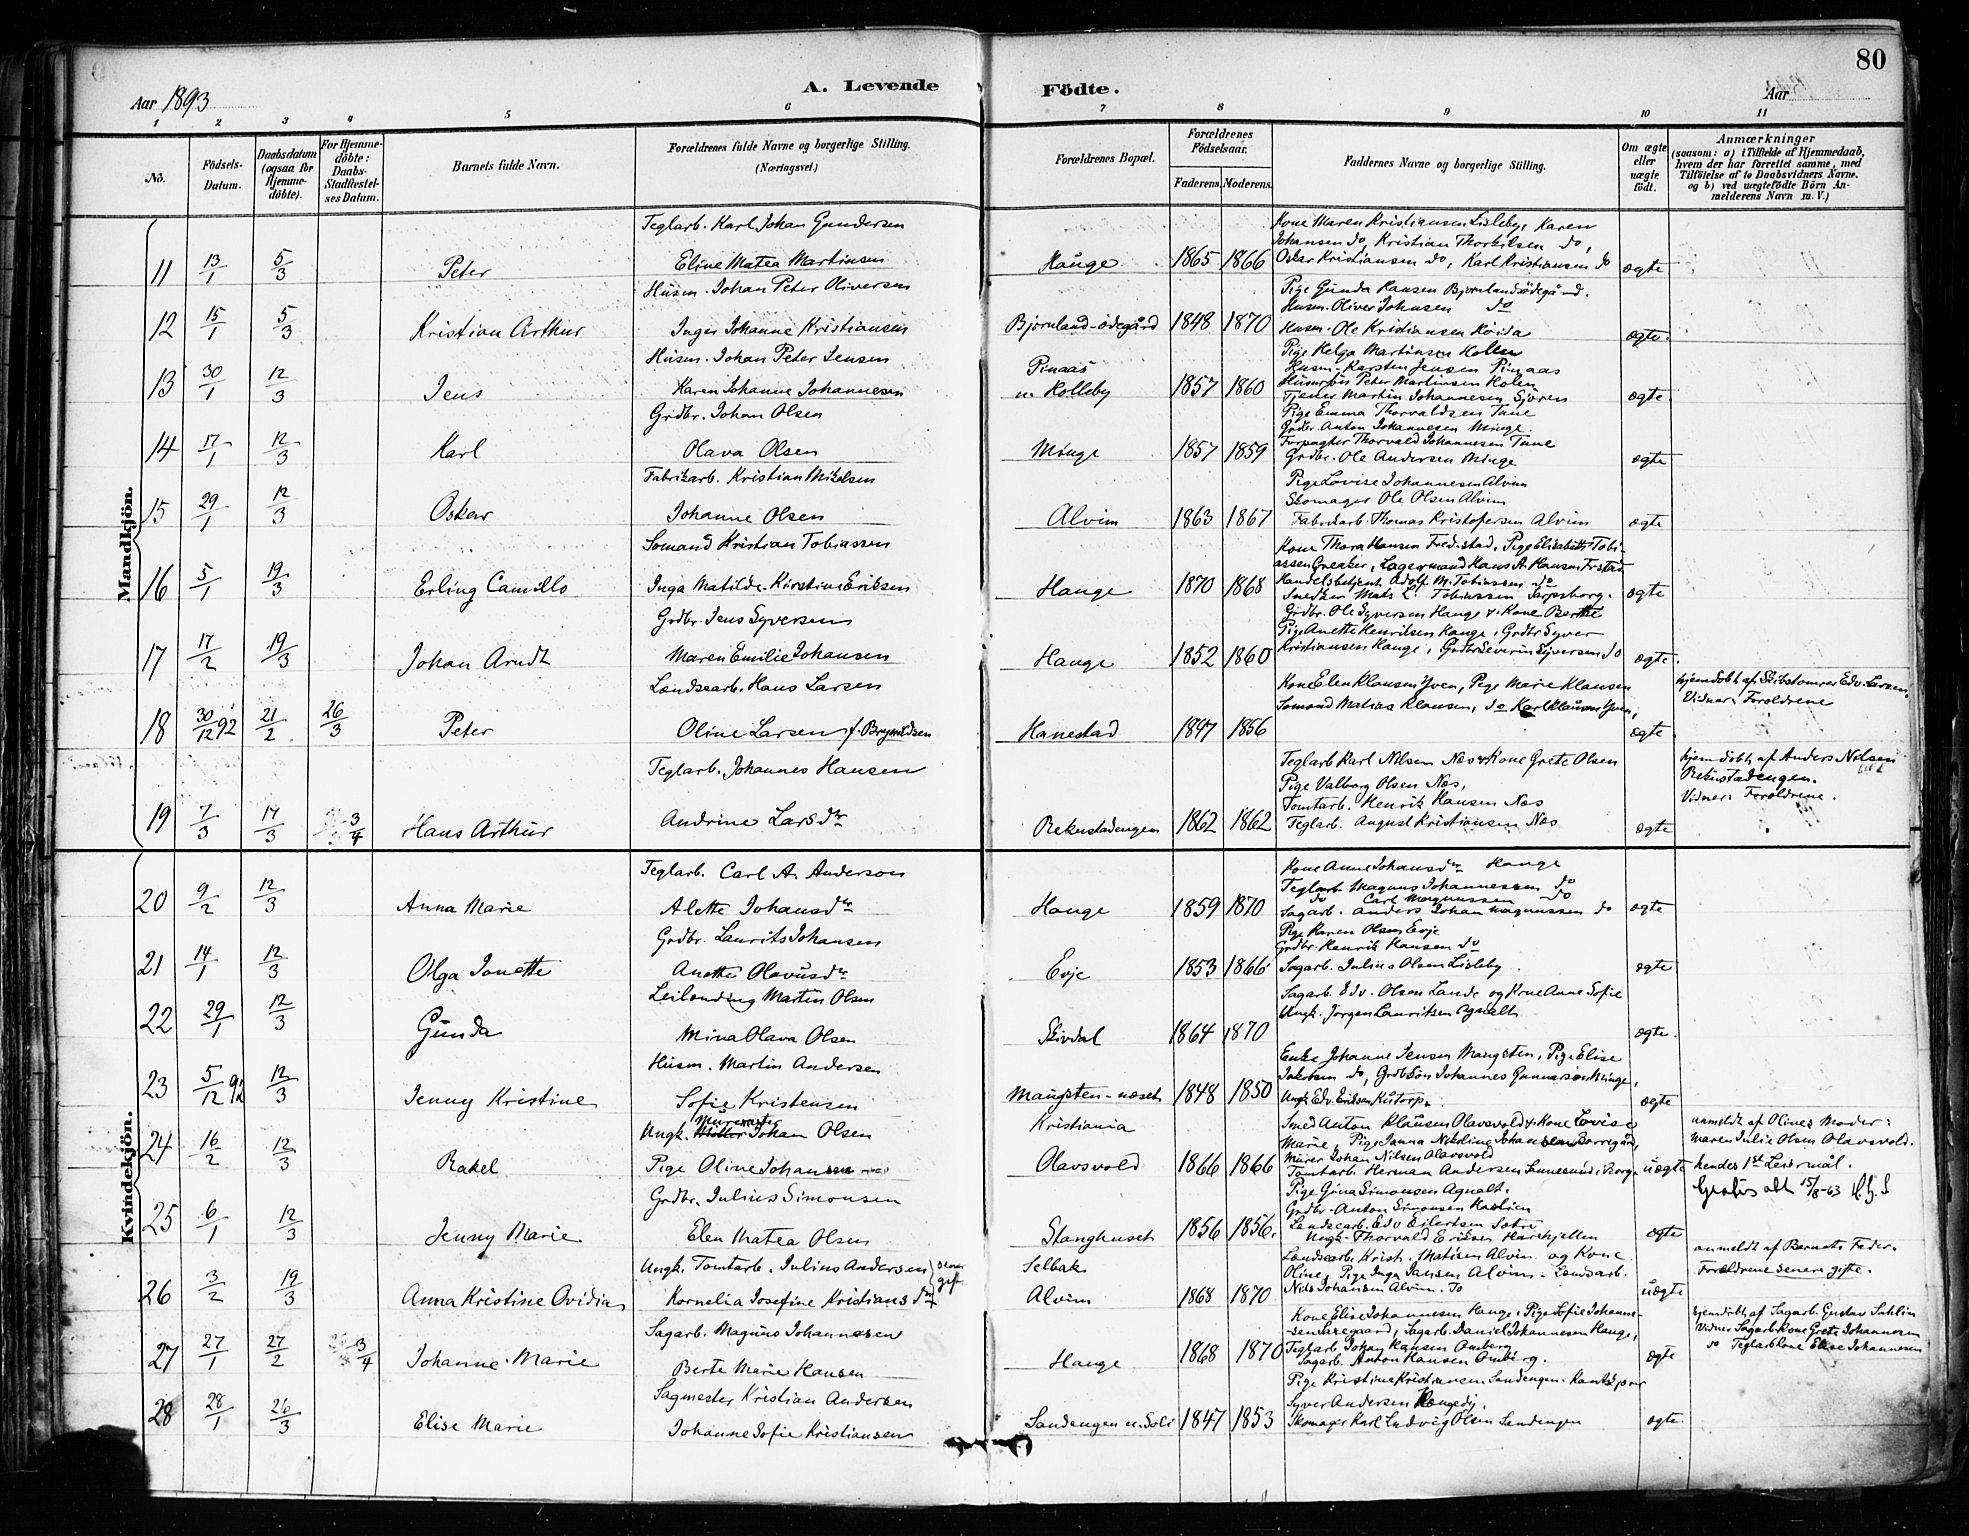 80
Aar 1893
A. Levende Födte.
Aar
1 2 3 4 5 6 7 8 9 10 11
No.
Födsels-Datum.
Daabsdatum (ogsaa for Hjemme-döbte).
For Hjemme-döbte: Daabs-Stadfæstel-ses Datum.
Barnets fulde Navn.
Forældrenes fulde Navne og borgerlige Stilling. (Næringsvei.)
Forældrenes Bopæl.
Forældrenes Födselsaar.
Faderens. Moderens.
Faddernes Navne og borgerlige Stilling.
Om ægte eller uægte födt.
Anmærkninger
(saasom: a) i Tilfælde af Hjemmedaab, hvem der har forrettet samme, med Tilföielse af to Daabsvidners Navne, og b) ved uægtefödte Börn An-melderens Navn m. V.)
Mandkjön.
Teglarb. Karl Johan Gundersen
Kone Maren Kristiansen Lisleby, Karen
Johansen do, Kristian Thorkilsen do,
11 13/1 5/3 Peter Eline Matea Martinsen Hauge 1865 1866 Oskar Kristiansen do, Karl Kristiansen do ægte
Husm. Johan Peter Oliversen
Pige Gunda Hansen Bjørnlandsødegård.
Husm. Oliver Johnsen do
12 15/1 5/3 Kristian Arthur Inger Johanne Kristiansen Bjørnland-ødegård 1848 1870 Husm. Ole Kristiansen ægte.
Husm. Johan Peter Jensen
Pige Helga Martinsen Holen
Husm. Karsten Jensen Pinaas
13 30/1 12/3 Jens Karen Johanne Johannesen Pinaas u. Kolleby 1857 1860 Peter Martinsen Holen ægte.
Tjener Martin Johannesen
Grdbr. Johan Olsen
Pige Emma Thorvaldsen Tune
Grdbr. Anton Johannesen Minge.
Forpagter Thorvald Johannesen Tune
14 17/1 12/3 Karl Olava Olsen Minge 1857 1859 Grdbr. Ole Andersen Minge ægte
Fabrikarb. Kristian Mikelsen
Pige Lovise Johannesen Alvim
Skomager Ole Olsen Alvim
15 29/1 12/3 Oskar Johanne Olsen Alvim 1863 1867 Fabrikarb. Thomas Kristofersen Alvim ægte
Sømand Kristian Tobiassen
Kone Thora Hansen Fredstad, Pige Elisabeth Tobi-
assen Greaker, Lagermand Hans A. Hansen Frstad
16 5/1 19/3 Erling Camillo Inga Matilde Kirstine Eriksen Hauge 1870 1868 Handelsbetjent Adolf M. Tobiassen do ægte
Snedker Mats L. Tobiassen Sarpsborg.
Grdbr. Jens Syversen
Grdbr. Ole Syversen Hauge & Kone Berthe
Pige Anette Henriksen Hauge, Grdbr Syver
17 17/2 19/3 Johan Arndt Maren Emilie Johansen Hauge 1852 1860 Kristiansen Hauge, Grdbr Severin Syversen do ægte.
Landsearb. Hans Larsen
Kone Elen Klausen Yven, Pige Marie Klausen
Sømand Matias Klausen, do Karl Klausen Yven,
18 30/12 92 21/2 26/3 Peter Oline Larsen f. Brynildsen Hanestad 1847 1856 ægte.
hjemdøbt af Skibstømrer Edv. Larsen.
Vidner: Forældrene
Teglarb. Johannes Hansen
Teglarb Karl Nilsen Næs & Kone Grete Olsen
Pige Valborg Olsen Næs,
Tomtarb. Henrik Hansen Næs
19 7/3 14/3 3/4 Hans Arthur Andrine Larsdr Rekustadengen 1862 1862 Teglarb. August Kristiansen Næs ægte
hjemdøbt af Anders Nilsen
Rekustadengen.
Vidner: Forældrene.
Kvindekjön.
Teglarb. Carl A. Anderson
Kone Anne Johansdr Hauge
Teglarb Magnus Johannessen do
do Carl Magnussen do
20 9/2 12/3 Anna Marie Alette Johansdr Hauge 1859 1870 Sagarb. Anders Johan Magnussen do ægte
Grdbr. Laurits Johansen
Pige Karen Olsen Evje
Grdbr. Henrik Hansen do
21 14/1 12/3 Olga Jonette Anette Olavusdr Evje 1853 1866 Sagarb. Julius Olsen Lisleby ægte
Leilending Martin Olsen
Sagarb. Edv. Olsen Lande og Kone Anne Sofie
Ungk. Jørgen Lauritsen Agnalt
22 29/1 12/3 Gunda Mina Olava Olsen Skivdal 1864 1870 ægte.
Husm. Martin Andersen
Enke Johanne Jensen Maugsten, Pige Elise
Jakobsen do, Grdb søn Johannes Gunnarsen Minge,
23 5/12 92 12/3 Jenny Kristine Sofie Kristensen Maugsten-næset 1848 1850 Ungk. Edv. Eriksen Kustorp. ægte
Ungk. Møller Murermester Johan Olsen Kristiania
Smed Anton Klausen Olavsvold & Kone Lovise
Marie, Pige Janna Nikoline Johansen Borregård,
Murer Johan Nilsen Olavsvold
24 16/2 12/3 Rakel Pige Oline Johansen Olavsvold 1866 1866 Tomtarb. Herman Andersen Sannesund i Borge uægte
anmeldt af Olines Moder:
Maren Julie Olsen Olavsvold.
hendes 1st Leiermål.
Gratis att 15/8-63
Grdbr. Julius Simonsen
Pige Gina Simonsen Agnalt.
Grdbr. Anton Simonsen
25 6/1 12/3 Jenny Marie Elen Matea Olsen Stanghuset 1856 1856. Landsearb. Edv Eilertsen ægte
Ungk. Thorvald Eriksen
Ungk. Tomtarb. Julius Andersen } senere gift Selbak
Landsearb. Krist. Matisen Alvim og Kone
Oline, Pige Inga Jansen Alvim. Landsarb.
26 3/2 19/3 Anna Kristine Ovidia Kornelia Josefine Kristiansdr Alvim 1868 1870 Nils Johansen Alvim. uægte
anmeldt af Barnets Fader.
Forældrene senere gifte.
Sagarb. Magnus Johannesen
Kone Elise Johannesen Hauge, Pige Sofie Johanne-
sen, Sagarb. Daniel Johannesen Hauge,
Teglarb Johan Hansen Omberg
27 27/1 27/2 3/4 Johanne Marie Berte Marie Hansen Hauge 1868 1870 Sagarb. Anton Hansen Omberg. ægte
hjemdøbt af Sagarb. Gustav Sahlin
Vidner Sagarb. kone Grete Johannesen
do Teglarb kone Elise Johannesen
Sagmester Kristian Andersen
Pige Kristine Kristiansen Sandengen.
Syver Andersen
28 28/1 26/3 Elise Marie Johanne Sofie Kristiansen Sandengen u. Soli 1847 1853 Skomager Karl Ludvig Olsen Sandengen ægte.